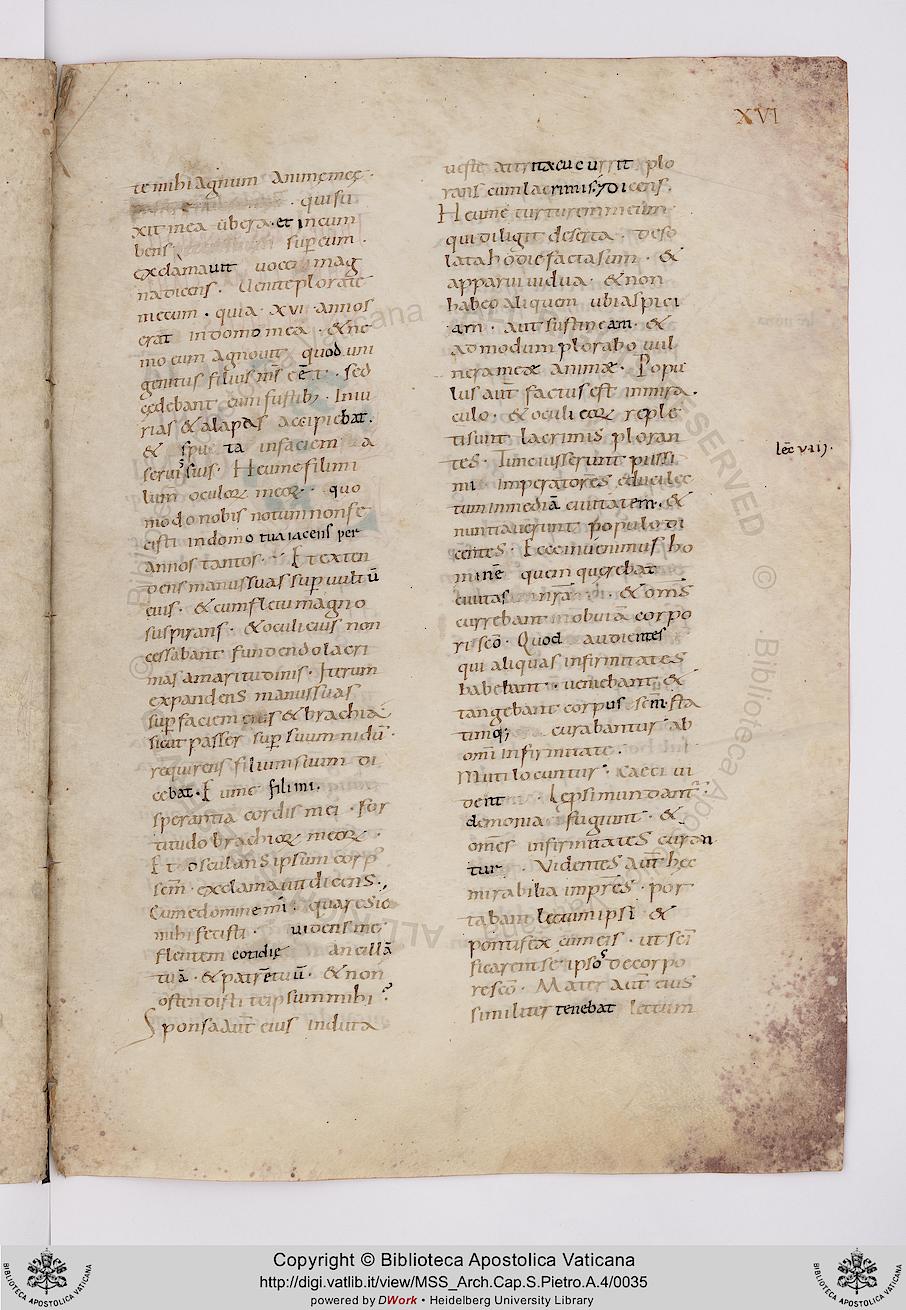 XVI
te mihi agnum animę meę.
. qui su
xit mea ubera. et incum
bens super eum.
exclamavit voce mag
na dicens. Venite plorate
mecum. quia. XVI. annos
erat in domo mea. & ne
mo eum agnovit quod uni
genitus filius m̄s eēt. sed
cędebant eum fustib; iniu
rias & alapas accipiebat.
& spu ta in faciem a
servis suis. Heume fili mi
lum oculoꝝ meoꝝ. quo
modo nobis notum non fe
cisti in domo tua iacens per
annos tantos. Et exten
dens manus suas sup vultū
eius. & cum fletu magno
suspirans. & oculi eius non
cessabant fundendo lacri
mas amaritudinis. Iterum
expandens manus suas
sup faciem eius & brachia
sicut passer sup suum nidū.
requirens filium suum di
cebat. Eume fili mi.
sperantia cordis mei. for
titudo brachioꝝ meoꝝ.
Et osculans ipsum corp
scm̄. exclamavit dicens.,
Eume domine mi. quare sic
mihi fecisti. videns me
flentem cotidię ancillā
tuā. & patrē tuū. & non
ostendisti te ipsum mihi?
Sponsa aut eius induta
veste atritta cucurrit plo
rans cum lacrimis, & dicens.
Heume turturem meum
qui diligit deserta. deso
lata hodie facta sum. &
apparui vidua. & non
habeo aliquem ubi aspici
am. aut sustineam. &
admodum plorabo vul
nera meæ animæ. Popu
lus aut factus est in mira
culo. & oculi eoꝝ reple
ti sunt lacrimis ploran
tes. Tunc iusserunt piissi
mi imperatores educi lec
tum in mediā civitatem. &
nuntiaverunt populo di
centes. Ecce invenimus ho
minē quem quęrebat
civitas nrā. & om̄s
currebant in obviā corpo
ri scō. Quod audientes
qui aliquas infirmitates
habebant. veniebant &
tangebant corpus scm̄ sta
timq; curabantur ab
omi infirmitate.
Muti locuntur. caeci vi
dent. lepsi mundant.
demonia fugiunt. &
omēs infirmitates curan
tur. Videntes aut hec
mirabilia impres. por
tabant lectum ipsi &
pontifex cum eis. ut sci
ficarent se ipsos de corpo
re scō. Mater aut eius
similiter tenebat lectum
lec̄ viij.
Copyright © Biblioteca Apostolica Vaticana
http://digi.vatlib.it/view/MSS_Arch.Cap.S.Pietro.A.4/0035
powered by DWork • Heidelberg University Library
BIBLIOTECA APOSTOLICA VATICANA
BIBLIOTECA APOSTOLICA VATICANA